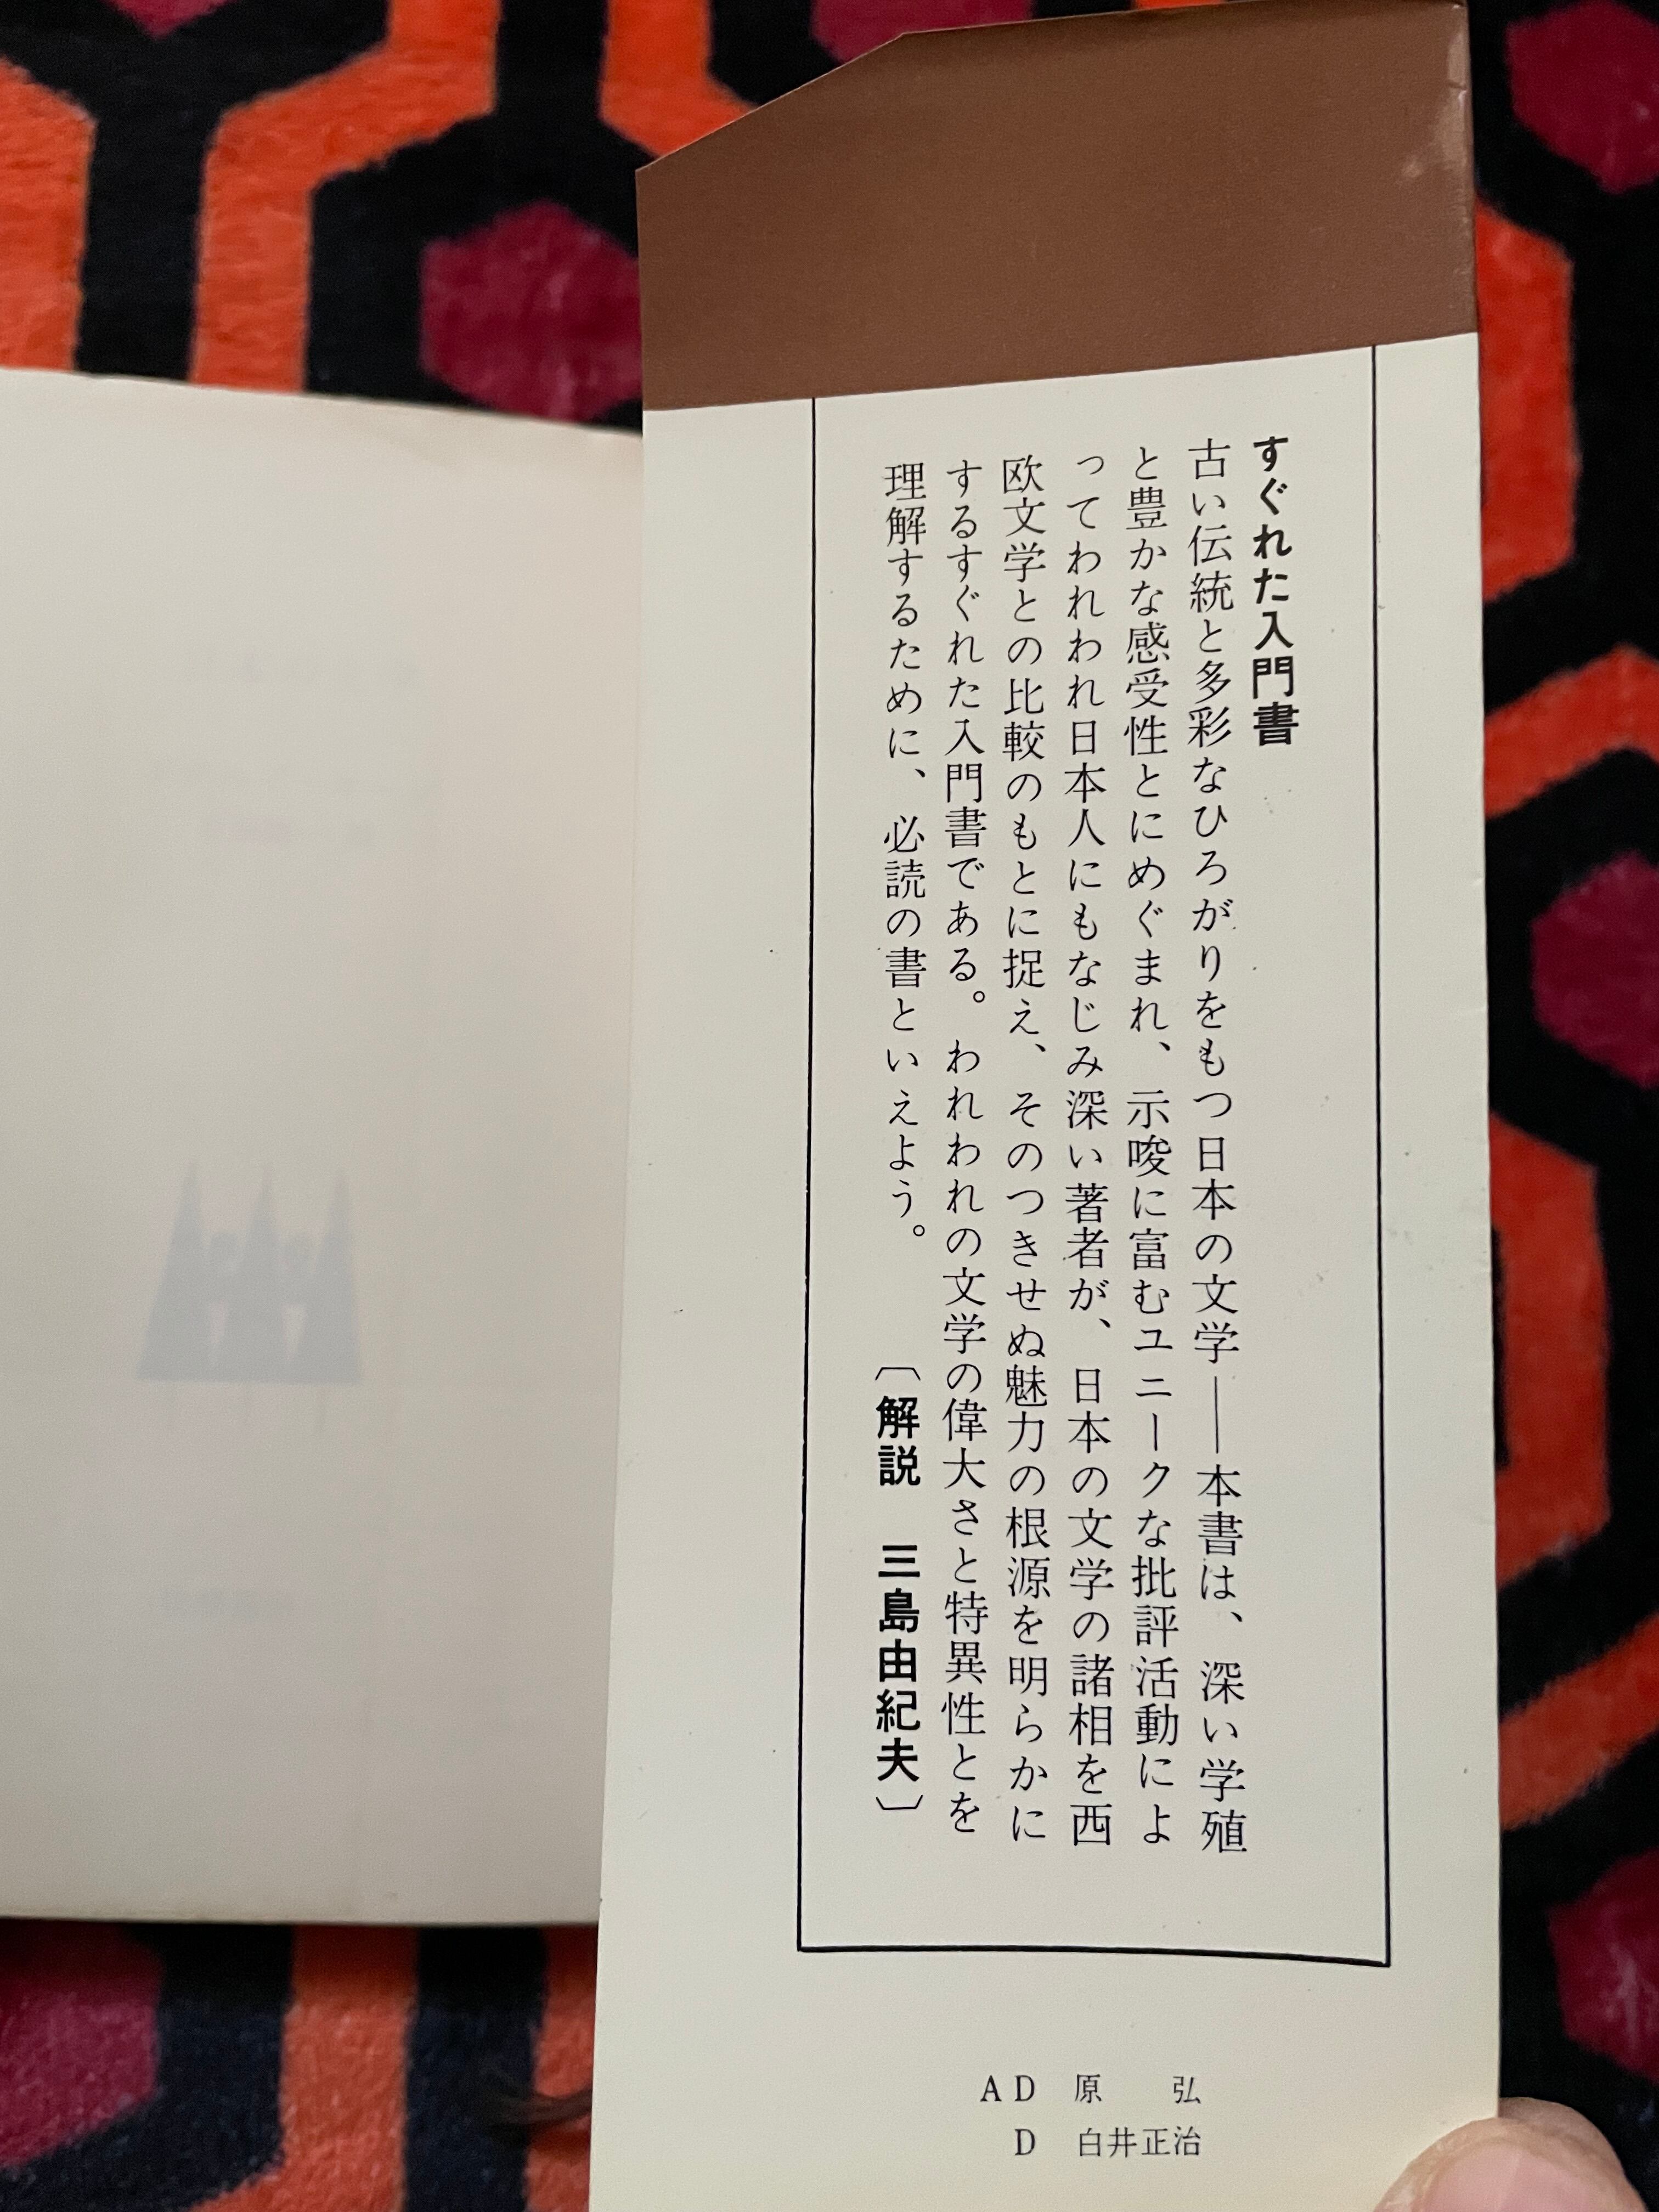 すぐれた入門書
古い伝統と多彩なひろがりをもつ日本の文学――本書は、深い学殖
と豊かな感受性とにめぐまれ、示唆に富むユニークな批評活動によ
ってわれわれ日本人にもなじみ深い著者が、日本の文学の諸相を西
欧文学との比較のもとに捉え、そのつきせぬ魅力の根源を明らかに
するすぐれた入門書である。われわれの文学の偉大さと特異性とを
理解するために、必読の書といえよう。〔解説 三島由紀夫〕
AD 原 弘
D 白井正治